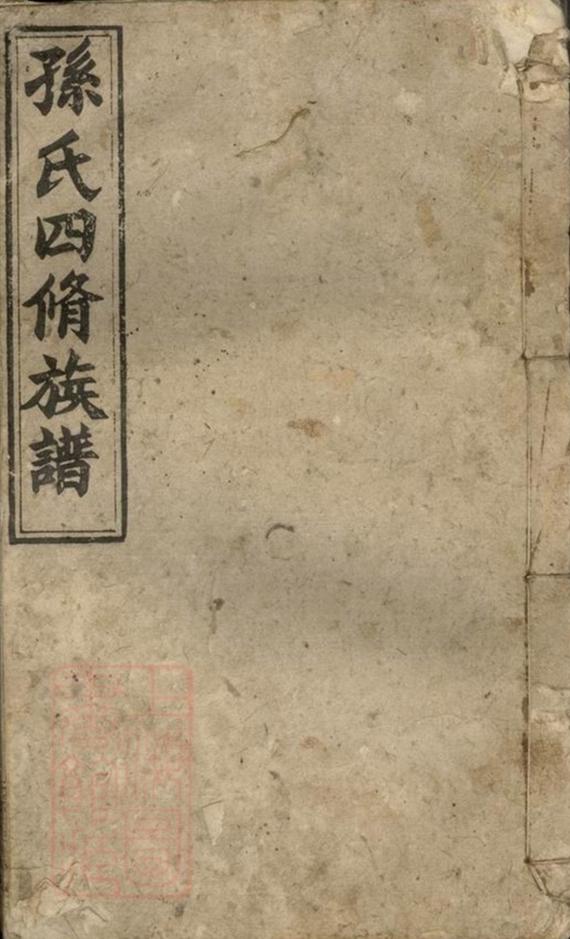 孫氏四脩族譜